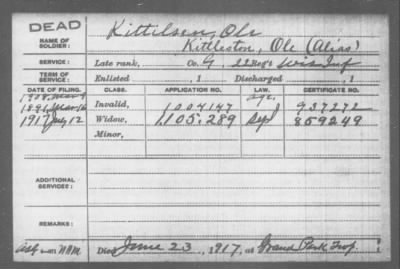 DEAD
NAME OF SOLDIER: Kittilsen, Ole
Kittleston, Ole (Alias)
SERVICE: Late rank, Co. G, 22 Reg't Wis Inf
TERM OF SERVICE: Enlisted , 1 Discharged , 1
DATE OF FILING. CLASS. APPLICATION NO. LAW. CERTIFICATE NO.
1908
1891 Mar 16 Invalid, 1004147 937272
1917 July 12 Widow, 1,105,289 Sep 859249
Minor,
ADDITIONAL SERVICES:
REMARKS:
Died June 23, 1917, at Grand Park Twp.